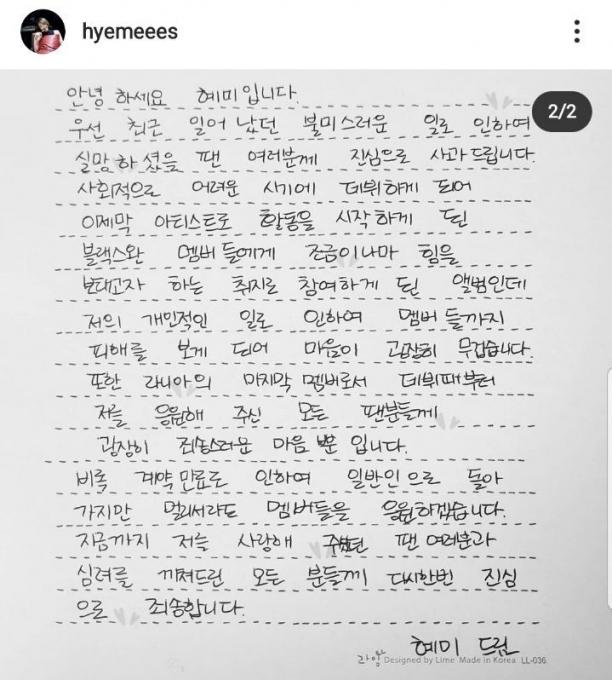 hyemeees
2/2
안녕 하세요 혜미입니다.
우선 최근 일어 났던 불미스러운 일로 인하여
실망하셨을 팬 여러분께 진심으로 사과드립니다.
사회적으로 어려운 시기에 데뷔하게 되어
이제막 아티스트로 활동을 시작하게 된
블랙스완 멤버들에게 조금이나마 힘을
보태고자 하는 취지로 참여하게 된 앨범인데
저의 개인적인 일로 인하여 멤버들까지
피해를 보게 되어 마음이 굉장히 무겁습니다.
또한 라니아의 마지막 멤버로서 데뷔때부터
저를 응원해 주신 모든 팬분들께
굉장히 죄송스러운 마음 뿐 입니다.
비록 계약만료로 인하여 일반인으로 돌아
가지만 멀리서라도 멤버들을 응원하겠습니다.
지금까지 저를 사랑해 주셨던 팬여러분과
심려를 끼쳐드린 모든 분들께 다시한번 진심
으로 죄송합니다.
혜미 드림
라임 Designed by Lime Made in Korea LL-036